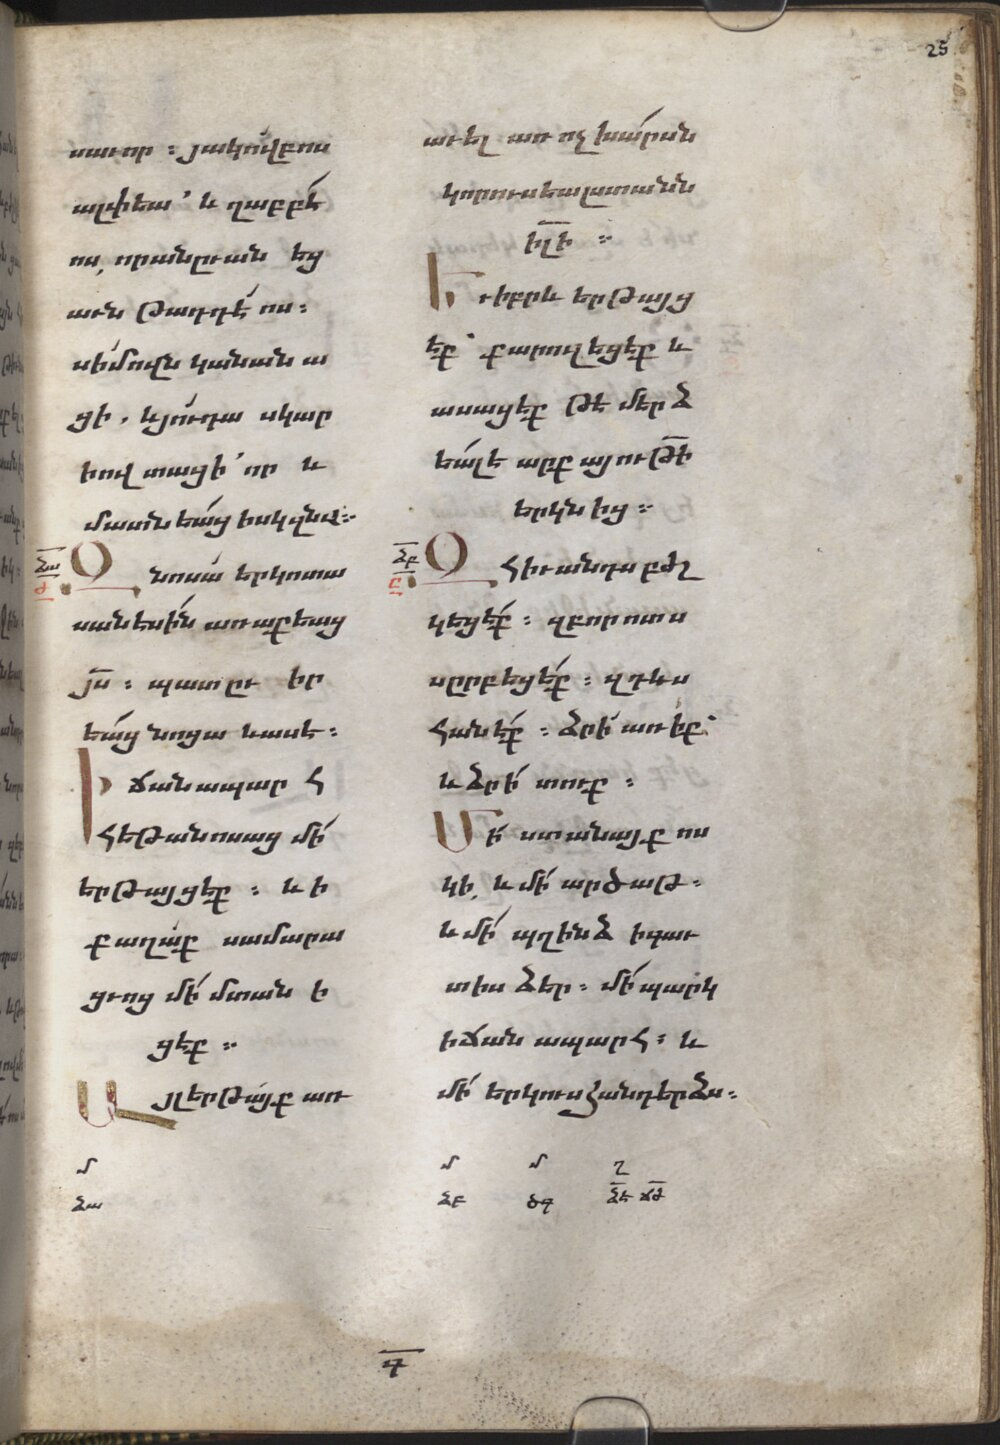 25
սաւոր ։ յակո՛վբոս
ալփեա ՚ և ղաբբէ՛
ոս, որանըւան եց
աւն թադդէ՛ ոս ։
սի՛մովն կանան ա
ցի . և յո՛ւդա սկար
իով տացի ՚ որ և
մատն եա՛ց իսկ զնա ։
ՁԱ
Զ նոսա՛ երկոտա
Բ
սան եսի՛ն առաքեաց
յս ։ պատ ըւ իր
եա՛ց նոցա և ասե ։
Ի ճանապար հ
հեթանոսաց մի՛
երթայցէք ։ և ի
քաղա՛ք սամարա
ցւոց մի՛ մտան ի
ցէք ։
Այլ երթա՛յք առ
ա՛
ձա
աւել առ ոչ խա՛րսն
կորուսեալս տանն
իլի ։
Եւ իբրև երթայց
էք ՝ քարոզ եցէք և
ասացէք թե մերձ
եա՛լ է արք այութի
երկն ից ։
ՁԲ
Զ հիւանդս բժշ
Բ
կեցէ՛ք ։ զբոր ոտ ս
սըրբեցէ՛ք ։ զ դևս
հանէ՛ք ։ ձրի՛ առ իք ՝
և ձրի՛ տուք ։
Մի՛ ստանայք ոս
կի, և մի՛ արծաթ ։
և մի՛ պղինձ ի գաւ
տիս ձեր ։ մի՛ պարկ
ի ճան ապարհ ։ և
մի՛ երկուս հանդերձս ։
մ մ ղ
ձբ ծգ ձե ճժ
Գ